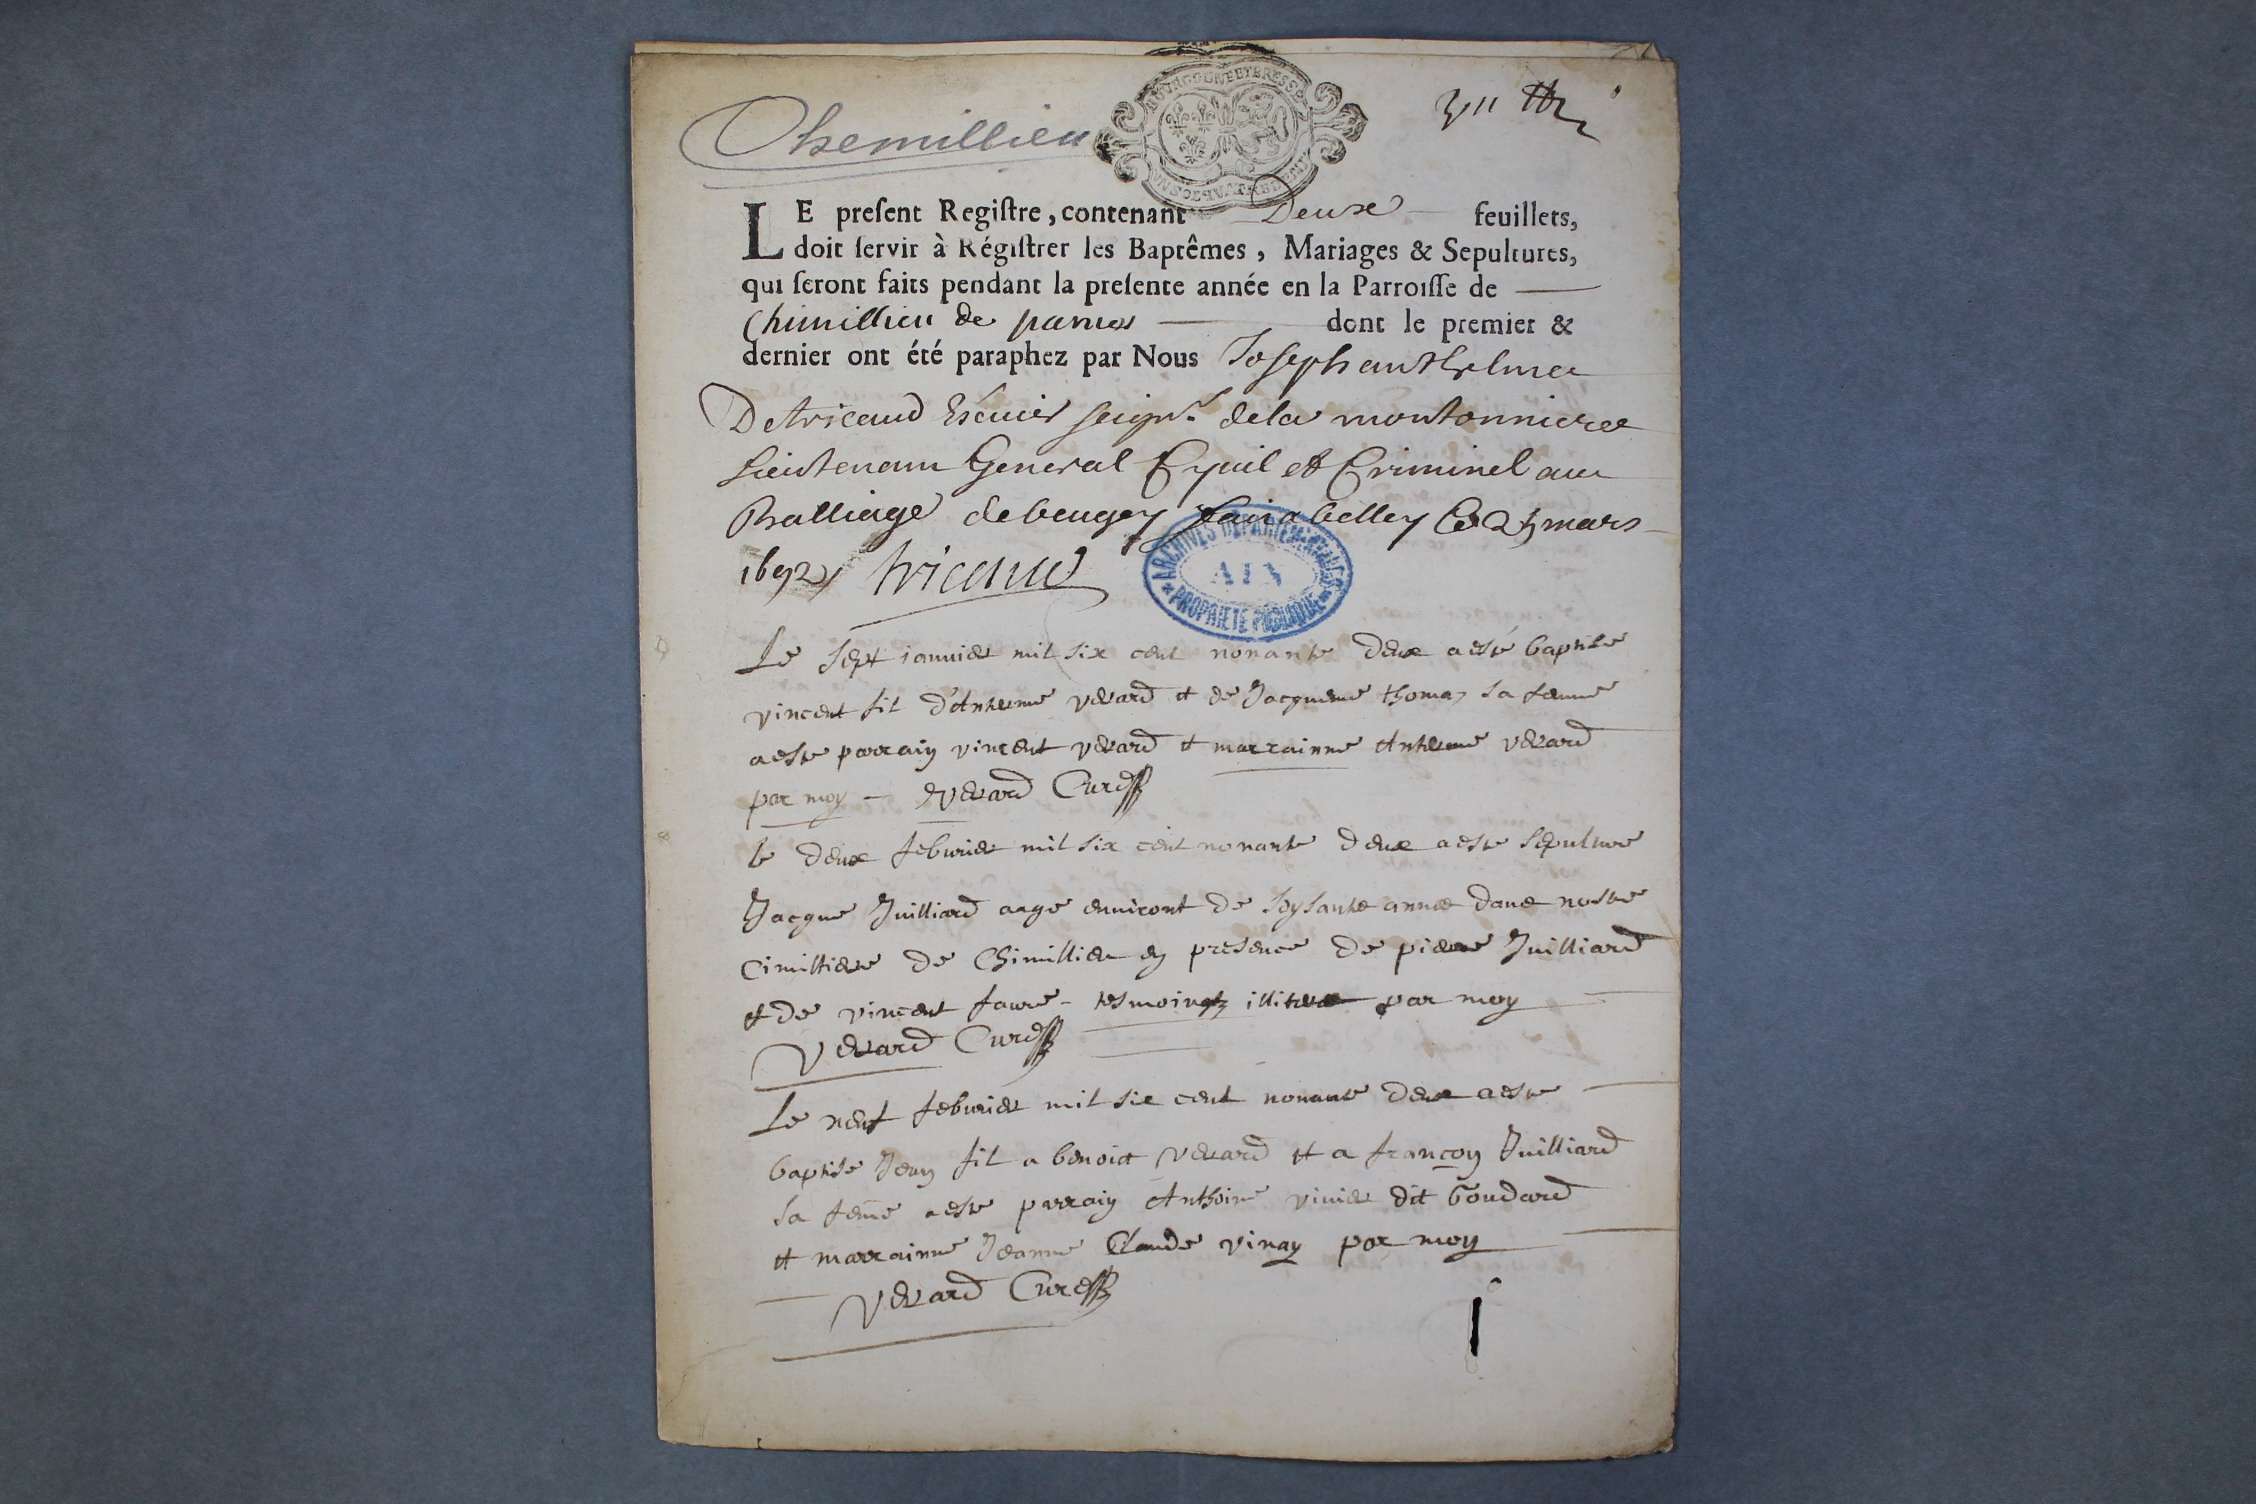 Chemillieu
BOURGOGNE ET BRESSE
LE preſent Regiſtre, contenant Deux feuillets,
doit ſervir à Régiſtrer les Baptêmes, Mariages & Sepultures,
qui ſeront faits pendant la preſente année en la Parroiſſe de
Chimillieu de parves dont le premier &
dernier ont été paraphez par Nous Joseph anthelme
De tricaud Escuier seigr. de la montonniere
Lieutenant General Cyuil et Criminel au
Balliage de beugey fait a belley le 25 mars
1692 tricaud
ARCHIVES DÉPARTEMENTALES
AIN
PROPRIÉTÉ PUBLIQUE
Le sept ianuier mil six cent nonante deux a esté baptise
vincent fil d'Antelme verard et de Jacqueme thomas sa femme
a este parrain vincent verard et marrainne Antelme verard
par moy verard Cure
le deux feburier mil six cent nonante deux a este sepulture
Jacque Juilliard aage enuiront de soysante annee dans nostre
cimiltiere de Chimillieu en presence de pierre Juilliard
et de vincent faure tesmoingtz illitere par moy
Verard Cure
Le neuf feburier mil six cent nonante deux a este
baptise Jean fil a benoict verard et a françoy Juilliard
sa feme a este parrain Anthoine vinier dit Goudard
et marrainne Jeanne Claude vinay par moy
verard Cure